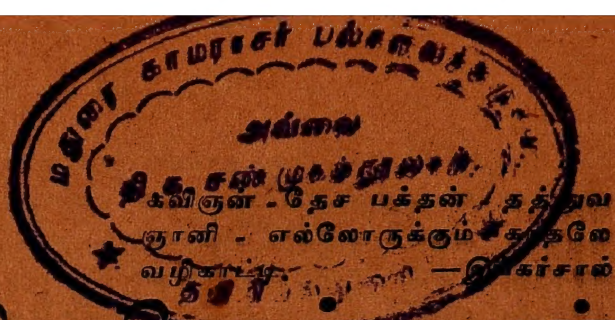 மதுரை காமராசர் பல்கலைக்கழக
அவ்வை
தி. க. சண்முகம்
கவிஞன் - தேச பக்தன் / தத்துவ
ஞானி - எல்லோருக்கும் காதலே
வழிகாட்டி. —இங்கர்சால்